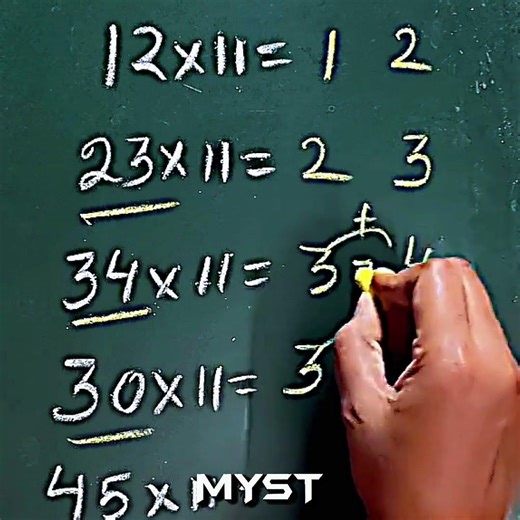 12x11= 1 2
23x11= 2 3
+
34x11= 3 7 4
30x11= 3
45x11
MYST